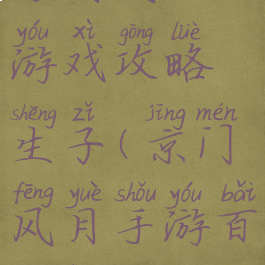 yóu xì gōng lüè
游戏攻略
shēng zǐ jīng mén
生子(京门
fēng yuè shǒu yóu bǎi
风月手游百